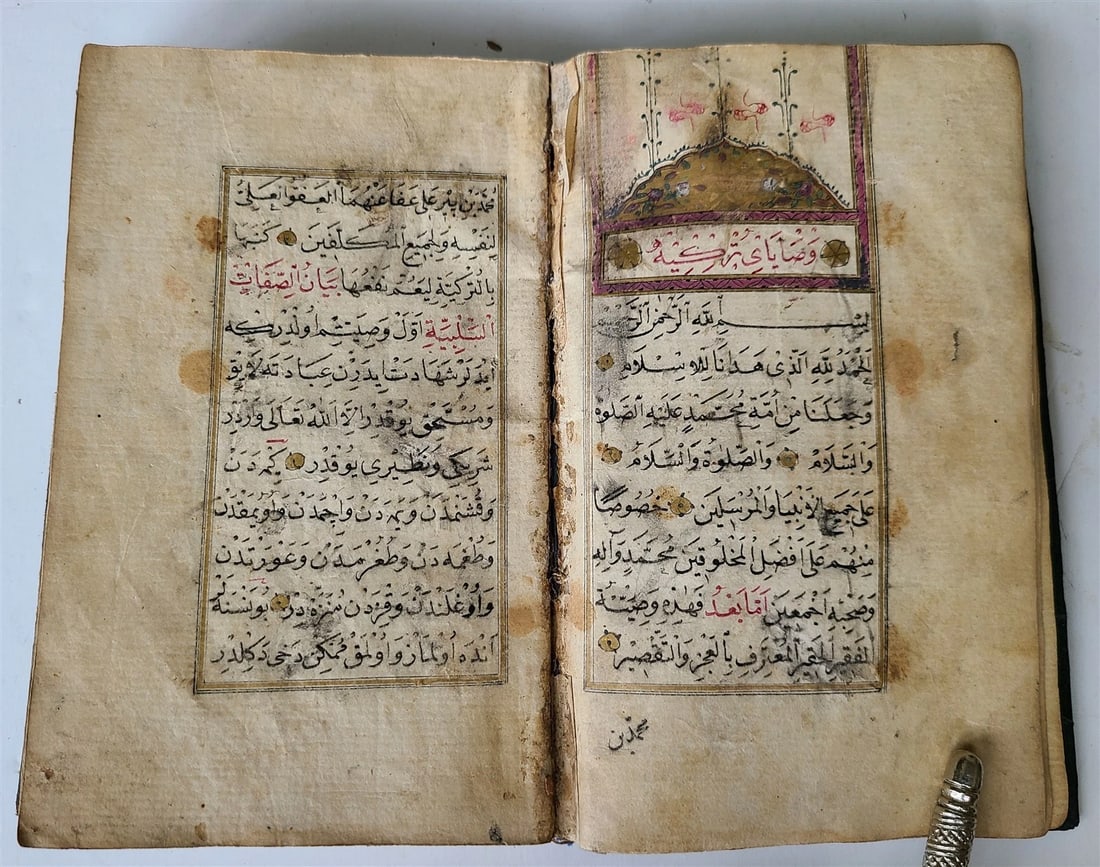 وَصَايَايِ تُرْكِيَّه
بِسْمِ اللّٰهِ الرَّحْمٰنِ الرَّحِيمِ
اَلْحَمْدُ لِلّٰهِ الَّذِي هَدَانَا لِلْاِسْلَامِ
وَجَعَلَنَا مِنْ اُمَّةِ مُحَمَّدٍ عَلَيْهِ الصَّلوٰةُ
وَالسَّلَامُ وَالصَّلوٰةُ وَالسَّلَامُ
عَلٰى جَمِيعِ الْاَنْبِيَاءِ وَالْمُرْسَلِينَ خُصُوصًا
مِنْهُمْ عَلٰى اَفْضَلِ الْمَخْلُوقِينَ مُحَمَّدٍ وَاٰلِهِ
وَصَحْبِهِ اَجْمَعِينَ اَمَّا بَعْدُ فَهٰذِهِ وَصِيَّةُ
الْفَقِيرِ الْحَقِيرِ الْمُعْتَرِفِ بِالْعَجْزِ وَالتَّقْصِيرِ
مُحَمَّد بْن
مُحَمَّد بْن پير عَلى عَفَا عَنْهُمَا الْعَفُوُّ الْعَلِيُّ
لِنَفْسِهِ وَلِجَمِيعِ الْمُكَلَّفِينَ كَتَبَهَا
بِالتُّرْكِيَّةِ لِيَعُمَّ نَفْعُهَا بَيَانُ الصِّفَاتِ
السَّلْبِيَّةِ اَوَّلْ وَصِيَّتِمْ اُولْدُرْكِه
اَيْدَلَرْ شَهَادَتْ اِيدَرِنْ عِبَادَتَه لَايِقْ
وَمُسْتَحِقْ يُوقْدِرْ اِلَّا اللّٰهُ تَعَالٰى وَارْدِرْ
شَرِيكِى وَنَظِيرِى يُوقْدِرْ يِمَدَنْ
وَطُغْمَه دَنْ وَطُغُرْمَدَنْ وَعَوْرَتْدَنْ
وَاُوغْلَنْدَنْ وَقِزْدَنْ مُنَزَّهْدِرْ بُو نَسْنَه لَرْ
اَنْدَه اُولْمَازْ وَاُولْمَقْ مُمْكِنْ دَخِى دَكِلْدِرْ